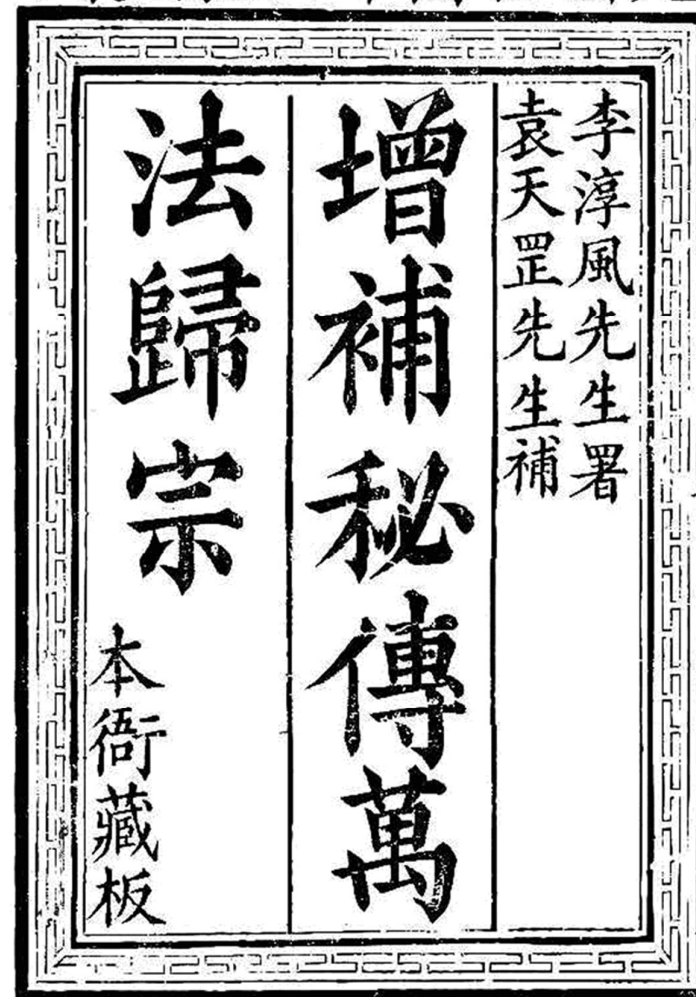 李淳風先生署
袁天罡先生補
增補秘傳萬
法歸宗
本衙藏板